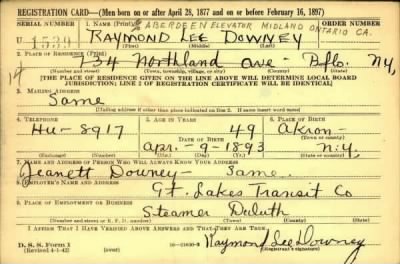 REGISTRATION CARD—(Men born on or after April 28, 1877 and on or before February 16, 1897)
SERIAL NUMBER 1. NAME (Print) ABERDEEN ELEVATOR MIDLAND ONTARIO CA. ORDER NUMBER
U 1539 RAYMOND LEE DOWNEY
(First) (Middle) (Last)
2. PLACE OF RESIDENCE (Print)
734 Northland ave - Bflo. N.Y.
(Number and street) (Town, township, village, or city) (County) (State)
14
[THE PLACE OF RESIDENCE GIVEN ON THE LINE ABOVE WILL DETERMINE LOCAL BOARD
JURISDICTION; LINE 2 OF REGISTRATION CERTIFICATE WILL BE IDENTICAL]
3. MAILING ADDRESS
Same
[Mailing address if other than place indicated on line 2. If same insert word same]
4. TELEPHONE 5. AGE IN YEARS 6. PLACE OF BIRTH
Hu-8917 49 Akron-
DATE OF BIRTH (Town or county)
Apr. - 9 - 1893 N.Y.
(Exchange) (Number) (Mo.) (Day) (Yr.) (State or country)
7. NAME AND ADDRESS OF PERSON WHO WILL ALWAYS KNOW YOUR ADDRESS
Jeanett Downey - Same.
8. EMPLOYER'S NAME AND ADDRESS
Gt. Lakes Transit Co
9. PLACE OF EMPLOYMENT OR BUSINESS
Steamer Duluth
(Number and street or R. F. D. number) (Town) (County) (State)
I AFFIRM THAT I HAVE VERIFIED ABOVE ANSWERS AND THAT THEY ARE TRUE.
D. S. S. Form 1
(Revised 4-1-42) 16—21630-2 Raymond Lee Downey
(Registrant's signature)